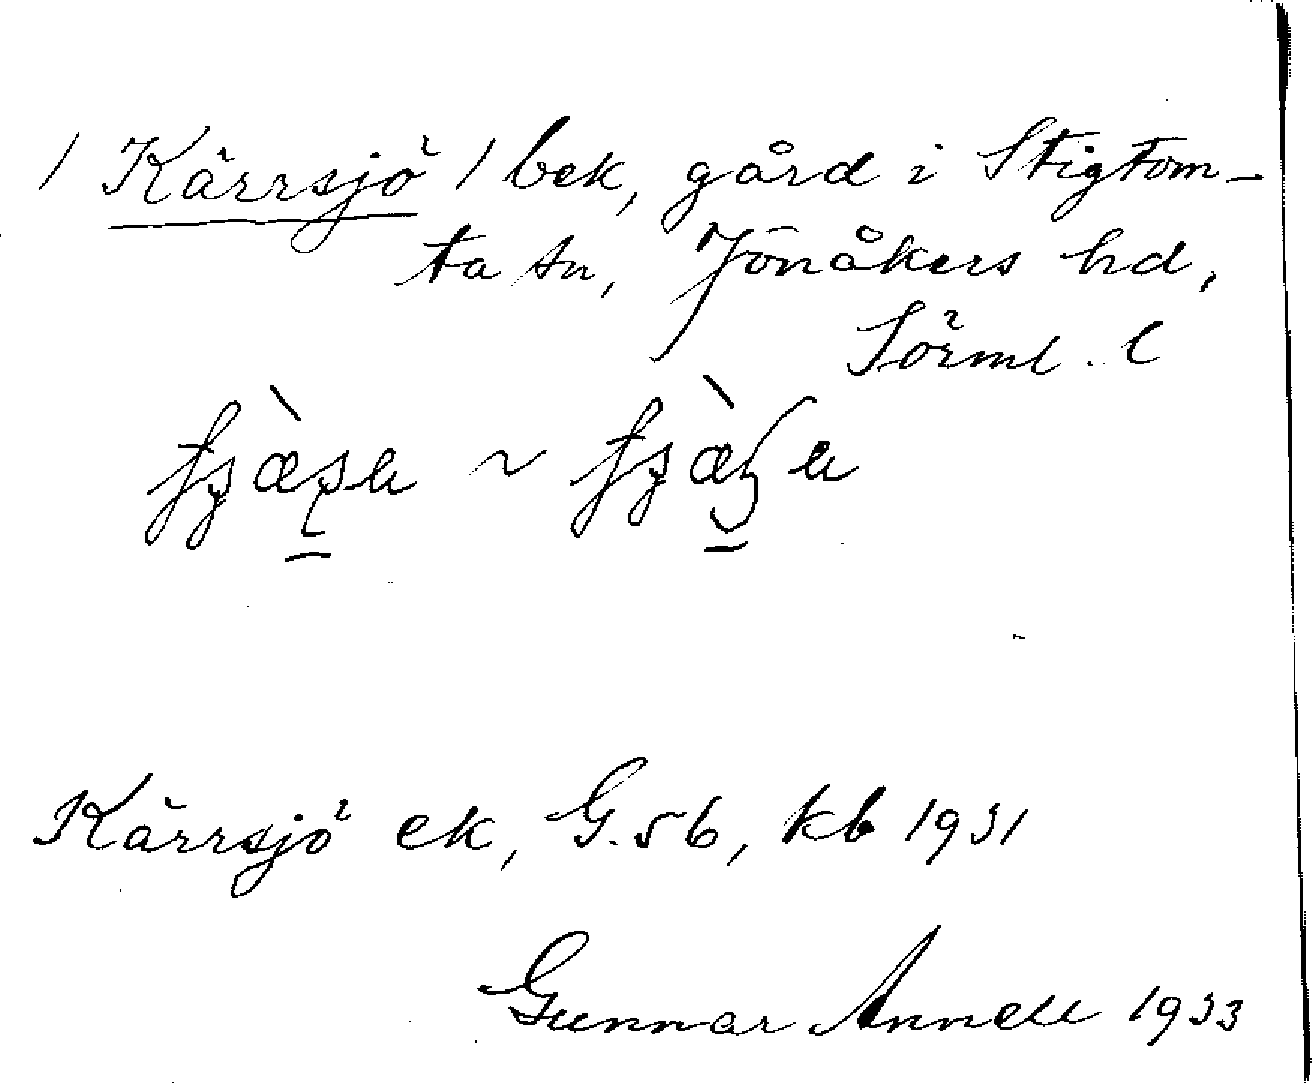 / Kärrsjö / bek, gård i Stigtom-
ta sn, Jönåkers hd,
Sörml. l
~
Kärrsjö ek, G. 56, kb 1931
Gunnar Annell 1933